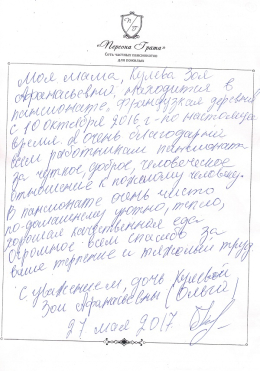 «Персона Грата»
Сеть частных пансионатов
для пожилых
Моя мама, Кулева Зоя
Афанасьевна, находится в
пансионате. Французская деревня
с 10 октября 2016 г - по настоящее
время. Я очень благодарна
всем работникам пансионата
за чуткое, доброе, человеческое
отношение к пожилому человеку.
В пансионате очень чисто
по-домашнему уютно, тепло,
хорошая качественная еда
Огромное всем спасибо за
ваше терпение и тяжелый труд
С уважением, дочь Кулевой
Зои Афанасьевны (Ольга)
27 мая 2017